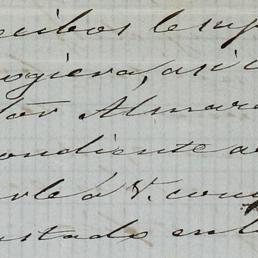 ecibos le sup
ogiera, asi c
dor Almara
ondiente a
erle á V. com
ustado en l